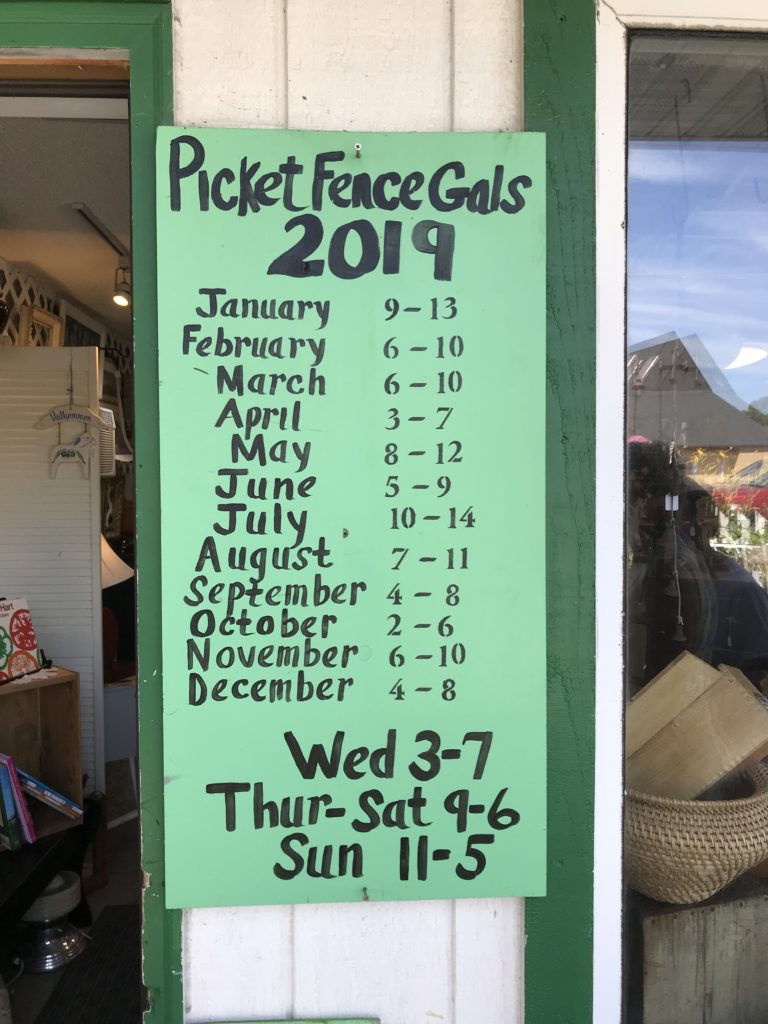 Picket Fence Gals
2019
January 9-13
February 6-10
March 6-10
April 3-7
May 8-12
June 5-9
July 10-14
August 7-11
September 4-8
October 2-6
November 6-10
December 4-8
Wed 3-7
Thur-Sat 9-6
Sun 11-5
Valkommen
Hart